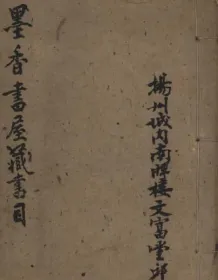 揚州城内南牌樓文富堂
墨香書屋藏書目